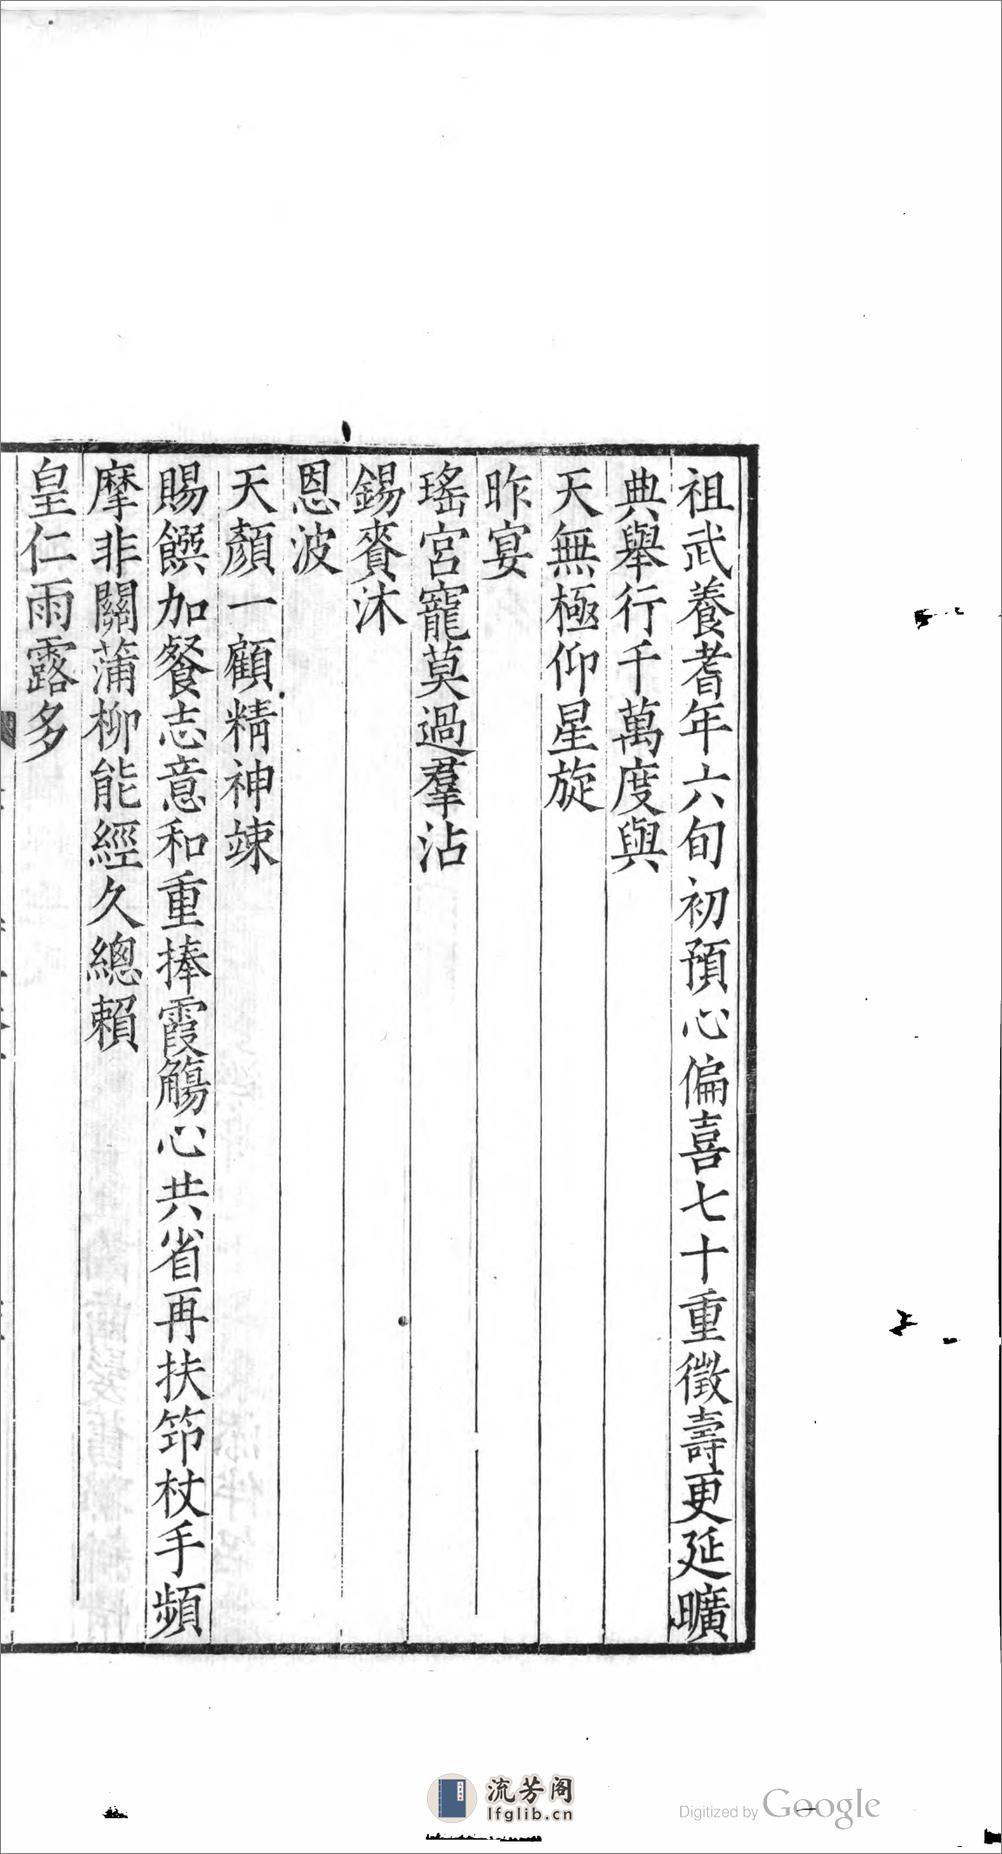 祖武養耆年六旬初預心偏喜七十重徵壽更延曠
典舉行千萬度與
天無極仰星旋
昨宴
瑤宮寵莫過羣沾
錫賚沐
恩波
天顏一顧精神竦
賜饌加餐志意和重捧霞觴心共省再扶筇杖手頻
摩非關蒲柳能經久總賴
皇仁雨露多
流芳阁
lfglib.cn
Digitized by Google